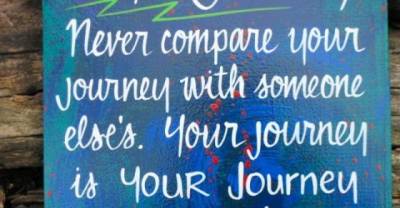 Never compare your
journey with someone
else's. Your journey
is YOUR Journey